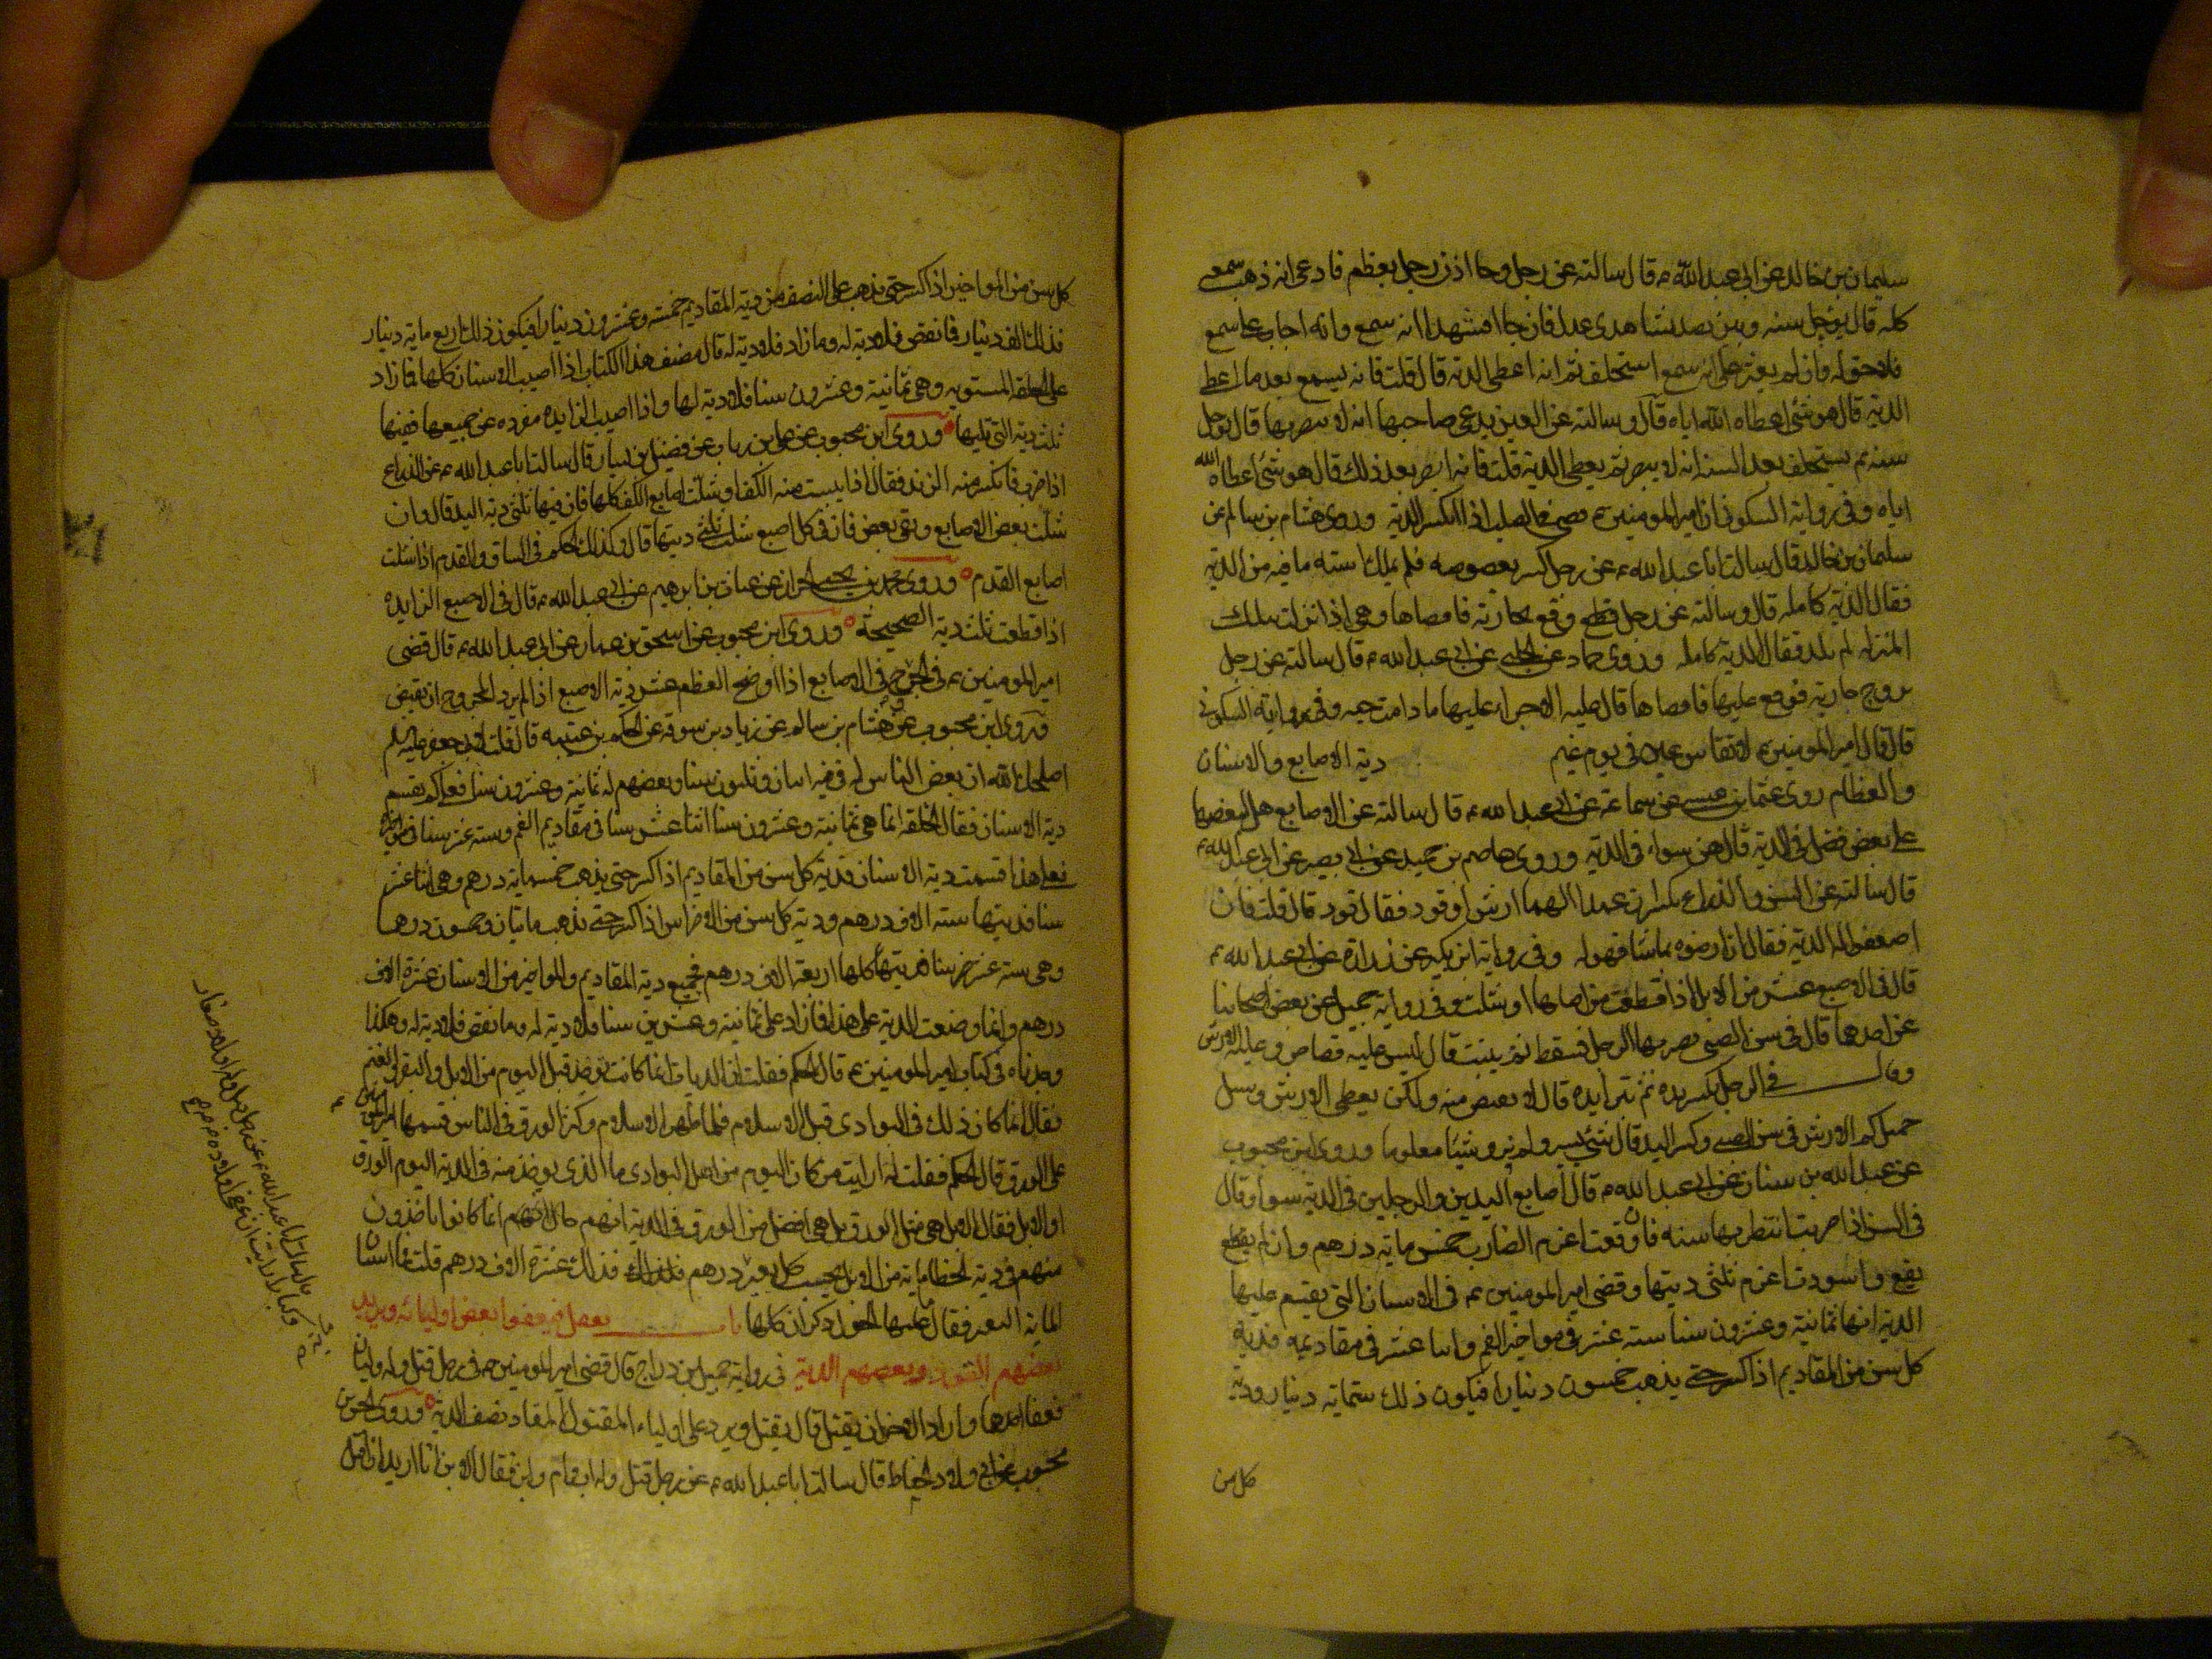 سليمان بن خالد عن ابي عبد الله ع قال سالته عن رجل وجا اذن رجل بعظم فادعى انه ذهب سمعه
كله قال يؤجل سنه ويترصد بشاهدى عدل فان جاا فشهدا انه سمع وانه اجاب على سمع
فلا حق له وان لم يعثر على انه سمع استحلف ثم انه اعطى الدية قال قلت فانه يسمع بعد ما اعطى
الدية قال هو شئ اعطاه الله اياه قال وسالته عن العين يدعى صاحبها انه لا يبصر بها قال يؤجل
سنه ثم يستحلف بعد السنة انه لا يبصر ثم يعطى الدية قلت فانه ابصر بعد ذلك قال هو شئ اعطاه الله
اياه وفي رواية السكوني ان امير المومنين ع قضى في الصلب اذا انكسر الدية وروى هشام بن سالم عن
سليمان بن خالد قال سالت ابا عبد الله ع عن رجل كسر بعصوصه فلم يملك استه ما فيه من الدية
فقال الدية كاملة قال وسالته عن رجل وقع بجارية فافضاها وهي اذا نزلت بتلك
المنزله لم تلد فقال الدية كاملة وروى حماد عن الحلبي عن ابي عبد الله ع قال سالته عن رجل
تزوج جارية فوقع عليها فافضاها قال عليه الاجراء عليها ما دامت حيه وفي رواية السكوني
قال قال امير المومنين ع لا تقاس عين في يوم غيم دية الاصابع والاسنان
والعظام روى عثمان بن عيسى عن سماعة عن ابي عبد الله ع قال سالته عن الاصابع هل لبعضها
على بعض فضل في الدية قال هن سواء في الدية وروى عاصم بن حميد عن ابي بصير عن ابي عبد الله ع
قال سالته عن السن والذراع يكسران عمدا الهما ارش او قود فقال قود قال قلت فان
اضعفوا له الدية فقال ان ارضوه بما شا فهو له وفي رواية ابن بكير عن زرارة عن ابي عبد الله ع
قال في الاصبع عشر من الابل اذا قطعت من اصلها او شلت وفي رواية جميل عن بعض اصحابنا
عن احدهما قال في سن الصبي يضربها الرجل فتسقط ثم ينبت قال ليس عليه قصاص وعليه الارش
وقال في الرجل يكسر يده ثم تبرا يده قال لا يقتص منه ولكن يعطى الارش وسئل
جميل كم الارش في سن الصبي وكسر اليد قال شئ يسير ولم يرو شيئا معلوما وروى ابن محبوب
عن عبد الله بن سنان عن ابي عبد الله ع قال اصابع اليدين والرجلين في الدية سواء وقال
في السن اذا ضربت انتظر بها سنه فان وقعت اغرم الضارب خمس ماية درهم وان لم
يقع واسودت اغرم ثلثى ديتها وقضى امير المومنين ع في الاسنان التي يقسم عليها
الدية انها ثمانية وعشرون سنا ستة عشر في مواخير الفم واثنا عشر في مقاديمه فدية
كل سن من المقاديم اذا كسر حتى يذهب خمسون دينارا فيكون ذلك ستماية دينار ودية
كل سن
كل سن من المواخير اذا كسر حتى يذهب على النصف من دية المقاديم خمسة وعشرون دينارا فيكون ذلك اربع ماية دينار
فذلك الف دينار فما نقص فلا دية له وما زاد فلا دية له قال مصنف هذا الكتاب اذا اصيب الاسنان كلها فما زاد
على الخلقة المستوية وهي ثمانية وعشرون سنا فلا دية لها واذا اصيب الزايدة مفردة عن جميعها ففيها
ثلث دية التي تليها وروى ابن محبوب عن علي بن رياب عن فضيل بن يسار قال سالت ابا عبد الله ع عن الذراع
اذا ضرب فانكسر منه الزند فقال اذا يبست منه الكف او شلت اصابع الكف كلها فان فيها ثلثى دية اليد قال وان
شلت بعض الاصابع وبقى بعض فان في كل اصبع شلت ثلثى ديتها قال وكذلك الحكم في الساق والقدم اذا شلت
اصابع القدم وروى محمد بن يحيى الخزاز عن غياث بن ابرهيم عن ابي عبد الله ع قال في الاصبع الزايدة
اذا قطعت ثلث دية الصحيحة وروى ابن محبوب عن اسحق بن عمار عن ابي عبد الله ع قال قضى
امير المومنين ع في الجرح في الاصابع اذا اوضح العظم عشر دية الاصبع اذا لم يرد المجروح ان يقتص
وروى ابن محبوب عن هشام بن سالم عن زياد بن سوقة عن الحكم بن عتيبة قال قلت لابي جعفر عليه السلم
اصلحك الله ان بعض الناس له في فيه اثنان وثلثون سنا وبعضهم له ثمانية وعشرون سنا فعلى كم تقسم
دية الاسنان فقال الخلقة انما هي ثمانية وعشرون سنا اثنتا عشر سنا في مقاديم الفم وستة عشر سنا في مواخيره
فعلى هذا قسمت دية الاسنان فدية كل سن من المقاديم اذا كسر حتى يذهب خمسماية درهم وهي اثنا عشر
سنا فديتها ستة الاف درهم ودية كل سن من الاضراس اذا كسر حتى يذهب مايتان وخمسون درهما
وهي ستة عشر ضرسا فديتها كلها اربعة الاف درهم فجميع دية المقاديم والمواخير من الاسنان عشرة الاف
درهم وانما وضعت الدية على هذا فما زاد على ثمانية وعشرين سنا فلا دية له وما نقص فلا دية له وهكذا
وجدناه في كتاب امير المومنين ع قال الحكم فقلت ان الديات انما كانت توخذ قبل اليوم من الابل والبقر والغنم
فقال انما كان ذلك في البوادى قبل الاسلام فلما ظهر الاسلام وكثر الورق في الناس قسمها امير المومنين ع
على الورق قال الحكم فقلت له ارايت من كان اليوم من اهل البوادى ما الذى يوخذ منه في الدية اليوم الورق
او الابل فقال الابل هي مثل الورق بل هي افضل من الورق في الدية انهم كانوا ياخذون
منهم في دية الخطا ماية من الابل يحسب كل بعير درهم فذلك عشرة الاف درهم قلت فما اسنان
الماية البعير فقال ما حال عليها الحول ذكران كلها باب
بعضهم القود وبعضهم الدية في رواية جميل بن دراج قال قضى امير المومنين ع في رجل قتل وله وليان
فعفا احدهما واراد الاخر ان يقتل قال يقتل ويرد على اولياء المقتول المقاد نصف الدية وروى الحسن
محبوب عن ابي ولاد الحناط قال سالت ابا عبد الله ع عن رجل قتل وله اب وام وابن فقال الابن انا اريد ان اقتل